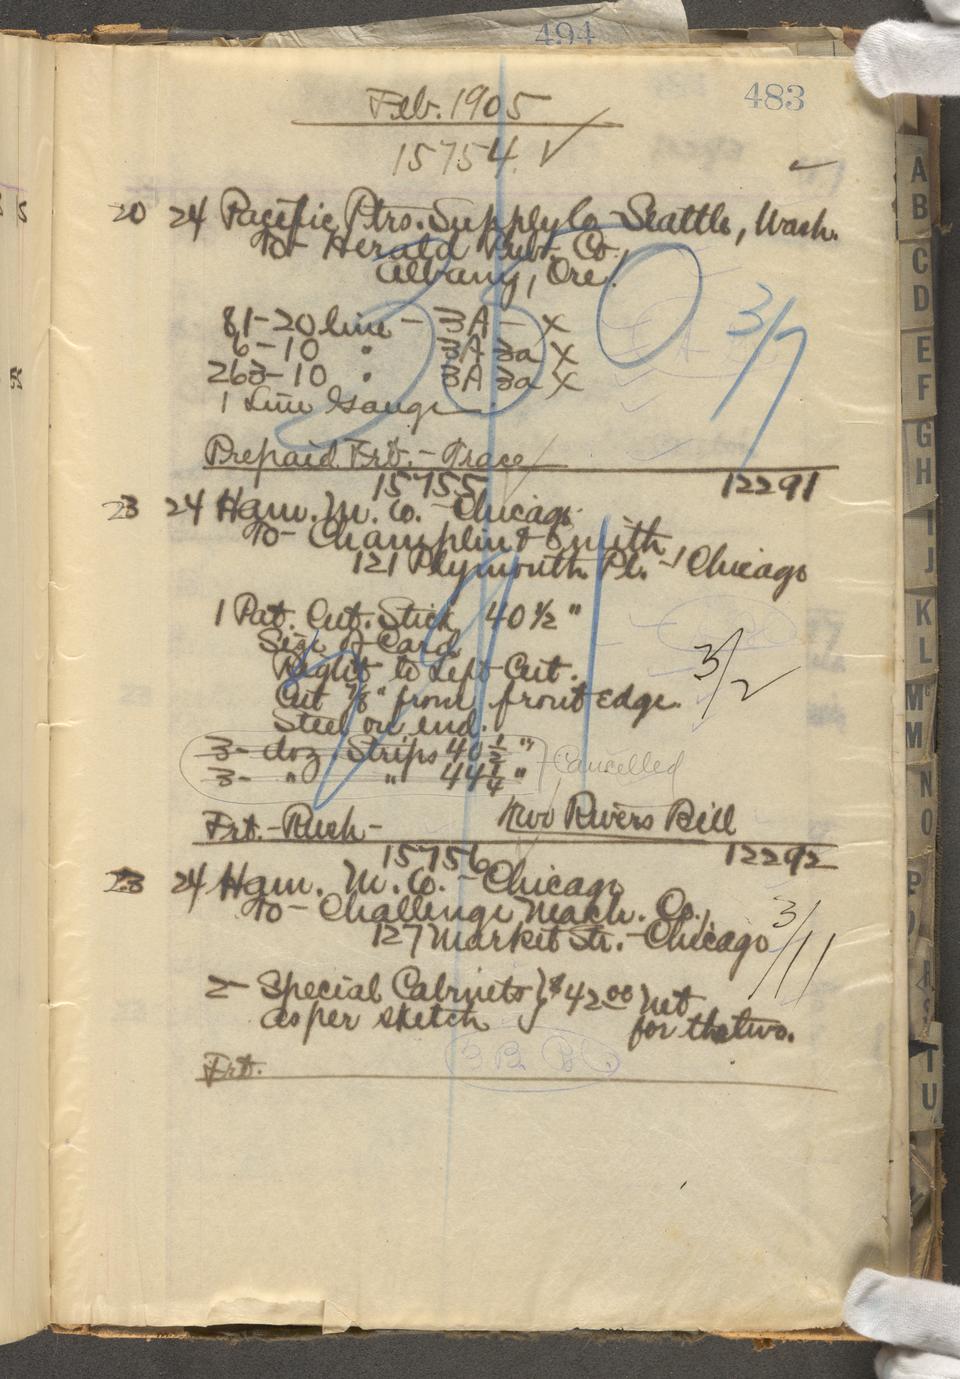 494
483
Feb. 1905
15754. ✓
20 24 Pacific Ptrs. Supply Co - Seattle, Wash.
To - Herald Pub. Co.,
Albany, Ore.
81 - 20 line - 3A - X
6 - 10 " 3A 3a X
263 - 10 " 3A 3a X
1 Line Gauge
3/7
Prepaid Frt. - Trace
15755 12291
23 24 Ham. M. Co. - Chicago
To - Champlin & Smith
121 Plymouth Pl. - Chicago
1 Pat. Cut. Stick 40 1/2 "
Size of Card
Right to Left Cut.
Cut 7/8" from front edge.
Steel on end.
3/2
3 - doz. Strips 40 1/2 "
3 - " " 44 1/4 " Cancelled
Frt. - Rush - Two Rivers Bill
15756 12292
23 24 Ham. M. Co. - Chicago
To - Challenge Mach. Co.,
127 Market Str. - Chicago
3/11
2 - Special Cabinets } $42.00 net
as per sketch for the two.
Frt.
A
B
C
D
E
F
G
H
I
J
K
L
Mc
M
N
O
P
R
S
T
U